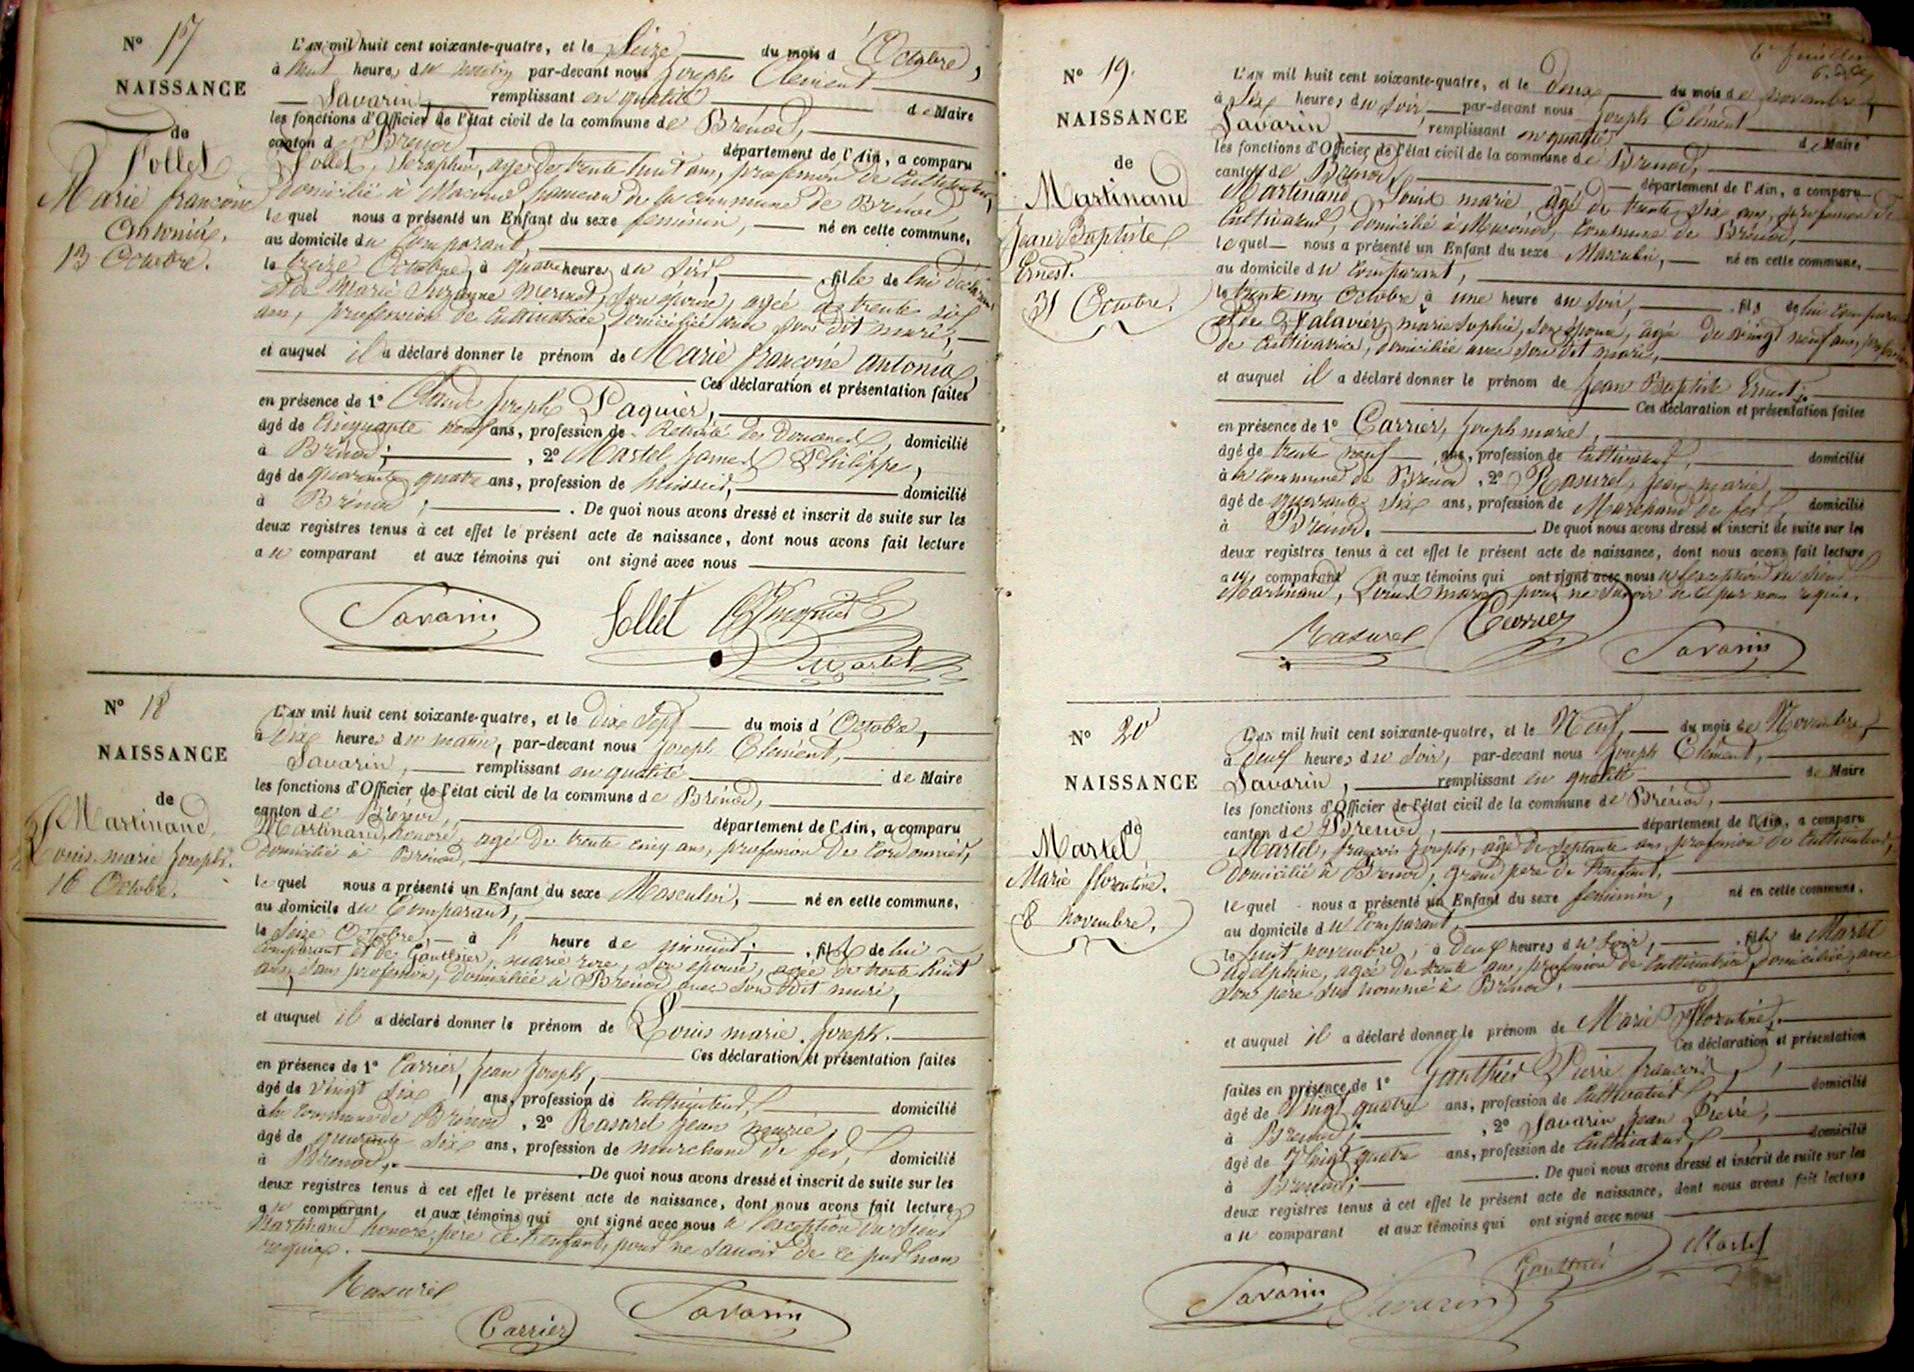 N° 17
NAISSANCE
de
Jollet
Marie françoise
Antonia.
13 Octobre.
L'AN mil huit cent soixante-quatre, et le Seize du mois d'Octobre,
à huit heures du matin par-devant nous Joseph Clément
Savarin, remplissant en qualité de Maire
les fonctions d'Officier de l'état civil de la commune de Brénod,
canton de Brénod, département de l'Ain, a comparu
Jollet, Séraphin, agé de trente huit ans, profession de Cultivateur,
domicilié à Macconod hameau de la commune de Brénod,
lequel nous a présenté un Enfant du sexe féminin, né en cette commune,
au domicile du Comparant,
le treize Octobre, à quatre heures du Soir, fille de lui déclarant
et de Marie Suzanne Mermet, son épouse, agée de trente six
ans, profession de Cultivatrice, domiciliée avec son dit mari,
et auquel il a déclaré donner le prénom de Marie françoise antonia
Ces déclaration et présentation faites
en présence de 1° Claude Joseph Paquier,
âgé de Cinquante neuf ans, profession de Retraité des Douanes, domicilié
à Brénod, 2° Martel James Philippe,
âgé de quarante quatre ans, profession de huissier, domicilié
à Brénod, . De quoi nous avons dressé et inscrit de suite sur les
deux registres tenus à cet effet le présent acte de naissance, dont nous avons fait lecture
au comparant et aux témoins qui ont signé avec nous
Savarin Jollet Martel
N° 18
NAISSANCE
de
Martinand,
Louis marie Joseph.
16 Octobre.
L'AN mil huit cent soixante-quatre, et le dix Sept du mois d'Octobre,
à dix heures du matin, par-devant nous Joseph Clément,
Savarin, remplissant en qualité de Maire
les fonctions d'Officier de l'état civil de la commune de Brénod,
canton de Brénod, département de l'Ain, a comparu
Martinand, honoré, agé de trente cinq ans, profession de Cordonnier,
domicilié à Brénod,
lequel nous a présenté un Enfant du sexe Masculin, né en cette commune,
au domicile du Comparant,
le Seize Octobre, à heure de minuit, fils de lui
comparant et de Gauthier, marie rose, son épouse, agée de trente huit
ans, sans profession, domiciliée à Brénod avec son dit mari,
et auquel il a déclaré donner le prénom de Louis marie Joseph.
Ces déclaration et présentation faites
en présence de 1° Carrier, Jean Joseph,
âgé de vingt six ans, profession de Cultivateur, domicilié
à la commune de Brénod, 2° Rasurel Jean marie,
âgé de quarante six ans, profession de marchand de fer, domicilié
à Brénod, . De quoi nous avons dressé et inscrit de suite sur les
deux registres tenus à cet effet le présent acte de naissance, dont nous avons fait lecture
au comparant et aux témoins qui ont signé avec nous à l'exception du Sieur
Martinand honoré, père de l'enfant, pour ne savoir de ce par nous
requis.
Rasurel Carrier Savarin
6e feuillet
N° 19.
NAISSANCE
de
Martinand
Jean Baptiste
Ernest.
31 Octobre.
L'AN mil huit cent soixante-quatre, et le deux du mois de novembre,
à Six heures du Soir, par-devant nous Joseph Clément
Savarin, remplissant en qualité de Maire
les fonctions d'Officier de l'état civil de la commune de Brénod,
canton de Brénod, département de l'Ain, a comparu
Martinand, Louis marie, agé de trente six ans, profession de
Cultivateur, domicilié à Macconod, commune de Brénod,
lequel nous a présenté un Enfant du sexe Masculin, né en cette commune,
au domicile du Comparant,
le trente un Octobre à une heure du Soir, fils de lui comparant
et de marie Sophie, son épouse, agée de vingt neuf ans, profession
de Cultivatrice, domiciliée avec son dit mari,
et auquel il a déclaré donner le prénom de Jean Baptiste Ernest,
Ces déclaration et présentation faites
en présence de 1° Carrier, Joseph marie,
âgé de trente neuf ans, profession de Cultivateur, domicilié
à la commune de Brénod, 2° Rasurel, Jean marie,
âgé de quarante six ans, profession de Marchand de fer, domicilié
à Brénod. De quoi nous avons dressé et inscrit de suite sur les
deux registres tenus à cet effet le présent acte de naissance, dont nous avons fait lecture
au comparant et aux témoins qui ont signé avec nous à l'exception du Sieur
Martinand, Louis marie pour ne savoir de ce par nous requis.
Rasurel Carrier Savarin
N° 20
NAISSANCE
de
Martel
Marie florentine.
8 novembre.
L'AN mil huit cent soixante-quatre, et le Neuf, du mois de Novembre,
à deux heures du Soir, par-devant nous Joseph Clément,
Savarin, remplissant en qualité de Maire
les fonctions d'Officier de l'état civil de la commune de Brénod,
canton de Brénod, département de l'Ain, a comparu
Martel, françois Joseph, agé de Septante ans, profession de Cultivateur,
domicilié à Brénod, grand père de l'enfant,
lequel nous a présenté un Enfant du sexe féminin, né en cette commune,
au domicile du Comparant,
le huit novembre, à deux heures du Soir, fille de Martel
Adelphine, agée de trente ans, profession de Cultivatrice, domiciliée avec
son père sus nommé à Brénod.
et auquel il a déclaré donner le prénom de Marie Florentine,
Ces déclaration et présentation
faites en présence de 1° Gauthier Pierre françois,
âgé de Vingt quatre ans, profession de Cultivateur, domicilié
à Brénod, 2° Savarin, Jean Pierre,
âgé de Vingt quatre ans, profession de Cultivateur, domicilié
à Brénod, . De quoi nous avons dressé et inscrit de suite sur les
deux registres tenus à cet effet le présent acte de naissance, dont nous avons fait lecture
au comparant et aux témoins qui ont signé avec nous
Savarin Savarin Gauthier Martel